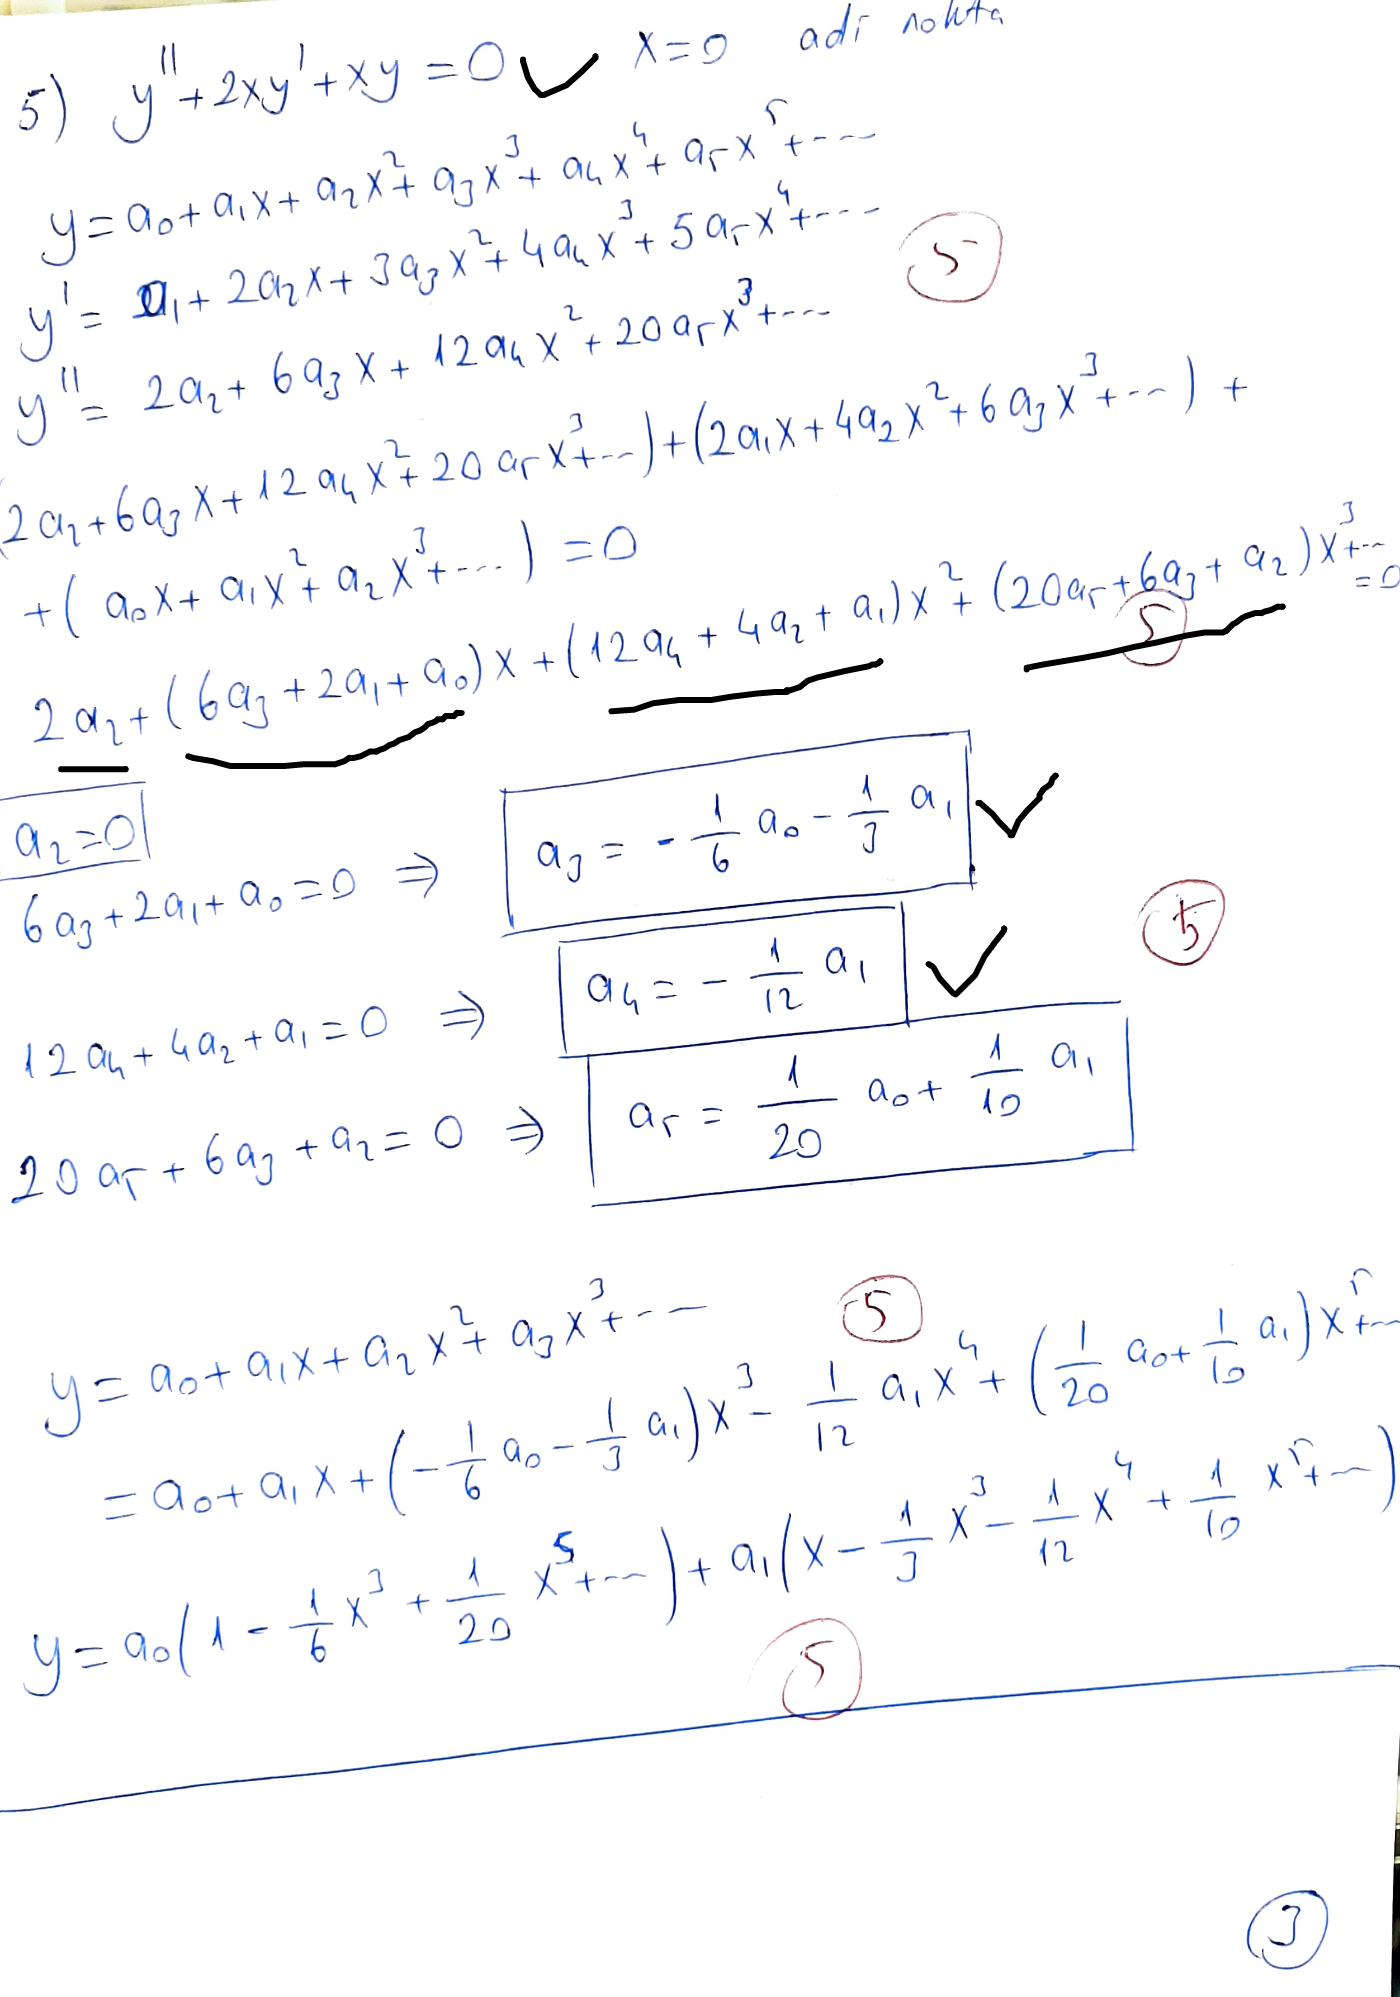 5) y'' + 2xy' + xy = 0 ✓ x=0 adi nokta
y = a₀ + a₁x + a₂x² + a₃x³ + a₄x⁴ + a₅x⁵ + ----
y' = a₁ + 2a₂x + 3a₃x² + 4a₄x³ + 5a₅x⁴ + ---
5
y'' = 2a₂ + 6a₃x + 12a₄x² + 20a₅x³ + ---
(2a₂ + 6a₃x + 12a₄x² + 20a₅x³ + ---) + (2a₁x + 4a₂x² + 6a₃x³ + ---) +
+ (a₀x + a₁x² + a₂x³ + ---) = 0
2a₂ + (6a₃ + 2a₁ + a₀)x + (12a₄ + 4a₂ + a₁)x² + (20a₅ + 6a₃ + a₂)x³ + --- = 0
5
a₂ = 0
6a₃ + 2a₁ + a₀ = 0 ⇒ a₃ = - 1/6 a₀ - 1/3 a₁ ✓
5
12a₄ + 4a₂ + a₁ = 0 ⇒ a₄ = - 1/12 a₁ ✓
20a₅ + 6a₃ + a₂ = 0 ⇒ a₅ = 1/20 a₀ + 1/10 a₁
y = a₀ + a₁x + a₂x² + a₃x³ + ---
5
= a₀ + a₁x + (- 1/6 a₀ - 1/3 a₁)x³ - 1/12 a₁x⁴ + (1/20 a₀ + 1/10 a₁)x⁵ + ---
y = a₀(1 - 1/6 x³ + 1/20 x⁵ + ---) + a₁(x - 1/3 x³ - 1/12 x⁴ + 1/10 x⁵ + ---)
5
3